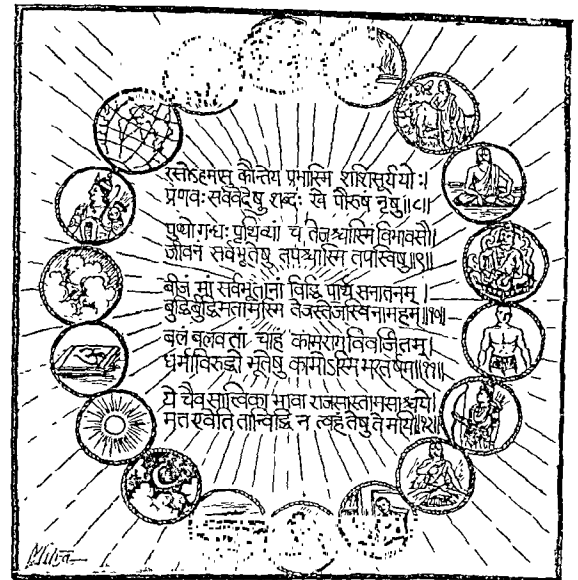 रसोऽहमप्सु कौन्तेय प्रभास्मि शशिसूर्ययोः।
प्रणवः सर्ववेदेषु शब्दः खे पौरुषं नृषु॥८॥
पुण्योगन्धः पृथिव्यां च तेजश्चास्मि विभावसौ।
जीवनं सर्वभूतेषु तपश्चास्मि तपस्विषु॥९॥
बीजं मां सर्वभूतानां विद्धि पार्थ सनातनम्।
बुद्धिर्बुद्धिमतामस्मि तेजस्तेजस्विनामहम्॥१०॥
बलं बलवतां चाहं कामरागविवर्जितम्।
धर्माविरुद्धो भूतेषु कामोऽस्मि भरतर्षभ॥११॥
ये चैव सात्त्विका भावा राजसास्तामसाश्च ये।
मत्त एवेति तान्विद्धि न त्वहं तेषु ते मयि॥१२॥
Mitra